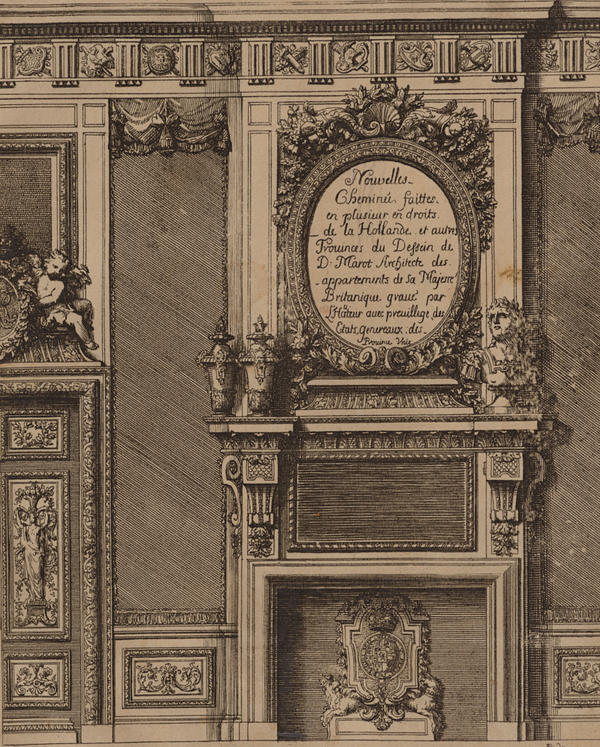 Nouvelles
Cheminée faittes
en plusieur en droits
de la Hollande et autres
Prouinces du Dessein de
D. Marot Architecte des
appartements de Sa Majesté
Britanique gravé par
l'Auteur avec previllege des
Etats generaux des
Prouince Unie